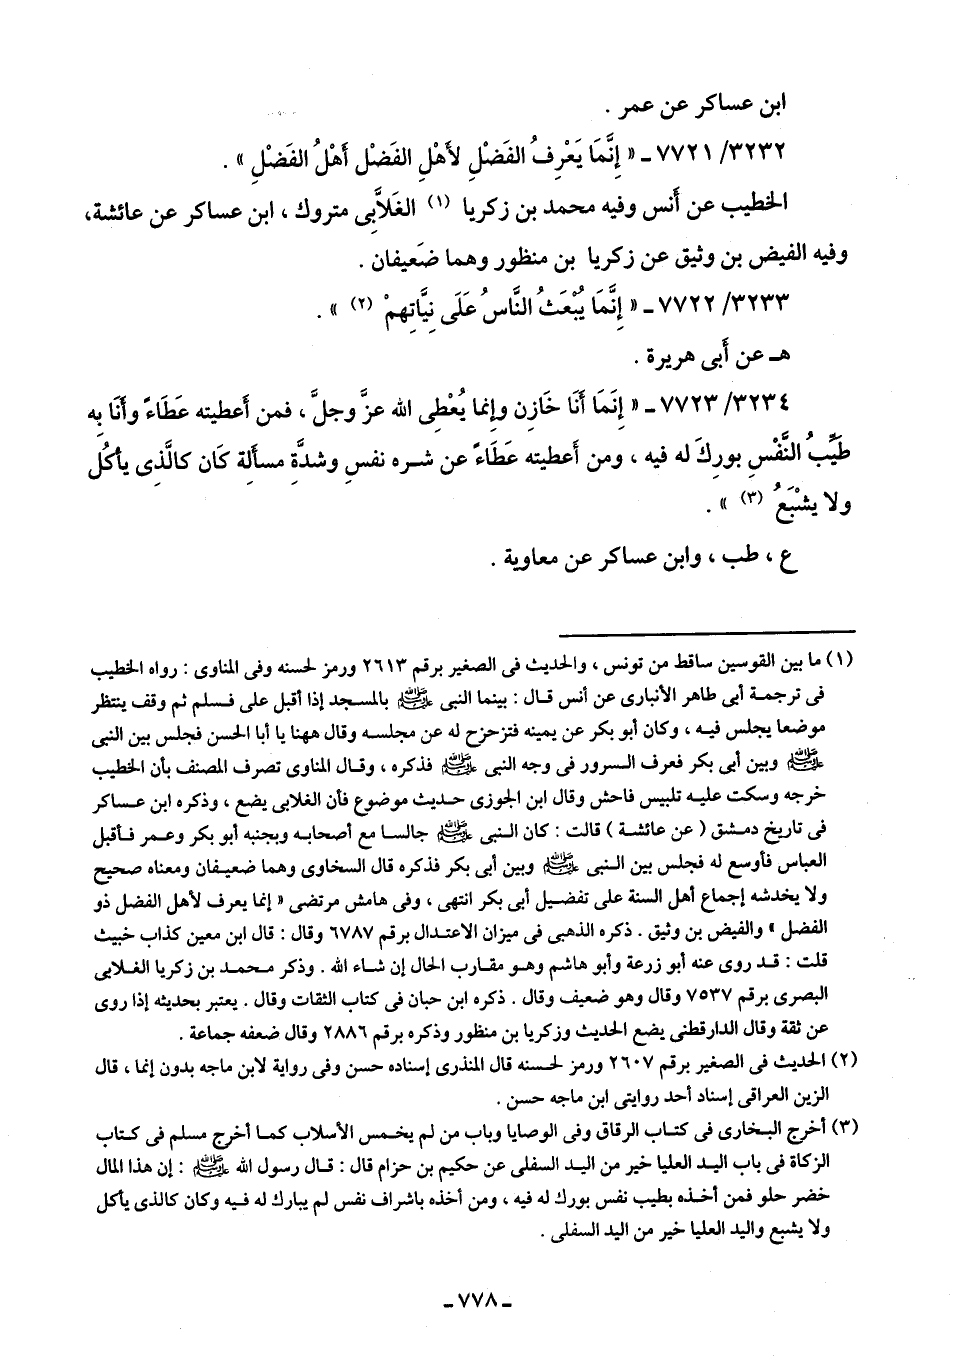 ابن عساكر عن عمر .
٣٢٣٢/ ٧٧٢١ ـ « إِنَّمَا يَعْرِفُ الفَضْلِ لأَهْلِ الفَضْلِ أَهْلُ الفَضْلِ » .
الخطيب عن أَنس وفيه محمد بن زكريا (١) الغَلاَّبِى متروك ، ابن عساكر عن عائشة،
وفيه الفيض بن وثيق عن زكريا بن منظور وهما ضَعيفان .
٣٢٣٣/ ٧٧٢٢ ـ « إِنَّمَا يُبْعَثُ النَّاسُ عَلَى نِيَّاتِهِمْ (٢) » .
هـ عن أَبى هريرة .
٣٢٣٤/ ٧٧٢٣ ـ « إِنَمَا أَنَا خَازِن وإِنما يُعْطِى الله عزَّ وجلَّ ، فمن أَعطيته عَطَاءً وأَنَا بِه
طَيِّبُ النَّفْسِ بورِكَ له فيه ، ومن أَعطيته عَطَاءً عن شره نفسٍ وشدَّةِ مسأَلة كَان كالَّذِى يأكُل
ولا يشْبَعُ (٣) » .
ع ، طب ، وابن عساكر عن معاوية .
(١) ما بين القوسين ساقط من تونس ، والحديث فى الصغير برقم ٢٦١٣ ورمز لحسنه وفى المناوى : رواه الخطيب
فى ترجمة أبى طاهر الأنبارى عن أنس قال : بينما النبى ﷺ بالمسجد إذا أقبل على فسلم ثم وقف ينتظر
موضعا يجلس فيه ، وكان أبو بكر عن يمينه فتزحزح له عن مجلسه وقال ههنا يا أبا الحسن فجلس بين النبى
ﷺ وبين أبى بكر فعرف السرور فى وجه النبى ﷺ فذكره ، وقال المناوى تصرف المصنف بأن الخطيب
خرجه وسكت عليه تلبيس فاحش وقال ابن الجوزى حديث موضوع فأن الغلابى يضع ، وذكره ابن عساكر
فى تاريخ دمشق ( عن عائشة ) قالت : كان النبى ﷺ جالسا مع أصحابه وبجنبه أبو بكر وعمر فأقبل
العباس فأوسع له فجلس بين النبى ﷺ وبين أبى بكر فذكره قال السخاوى وهما ضعيفان ومعناه صحيح
ولا يخدشه إجماع أهل السنة على تفضيل أبى بكر انتهى ، وفى هامش مرتضى « إنما يعرف لأهل الفضل ذو
الفضل » والفيض بن وثيق . ذكره الذهبى فى ميزان الاعتدال برقم ٦٧٨٧ وقال : قال ابن معين كذاب خبيث
قلت : قد روى عنه أبو زرعة وأبو هاشم وهو مقارب الحال إن شاء الله . وذكر محمد بن زكريا الغلابى
البصرى برقم ٧٥٣٧ وقال وهو ضعيف وقال . ذكره ابن حبان فى كتاب الثقات وقال . يعتبر بحديثه إذا روى
عن ثقة وقال الدارقطنى يضع الحديث وزكريا بن منظور وذكره برقم ٢٨٨٦ وقال ضعفه جماعة .
(٢) الحديث فى الصغير برقم ٢٦٠٧ ورمز لحسنه قال المنذرى إسناده حسن وفى رواية لابن ماجه بدون إنما ، قال
الزين العراقى إسناد أحد روايتى ابن ماجه حسن .
(٣) أخرج البخارى فى كتاب الرقاق وفى الوصايا وباب من لم يخمس الأسلاب كما أخرج مسلم فى كتاب
الزكاة فى باب اليد العليا خير من اليد السفلى عن حكيم بن حزام قال : قال رسول الله ﷺ : إن هذا المال
خضر حلو فمن أخذه بطيب نفس بورك له فيه ، ومن أخذه باشراف نفس لم يبارك له فيه وكان كالذى يأكل
ولا يشبع واليد العليا خير من اليد السفلى .
ـ ٧٧٨ ـ